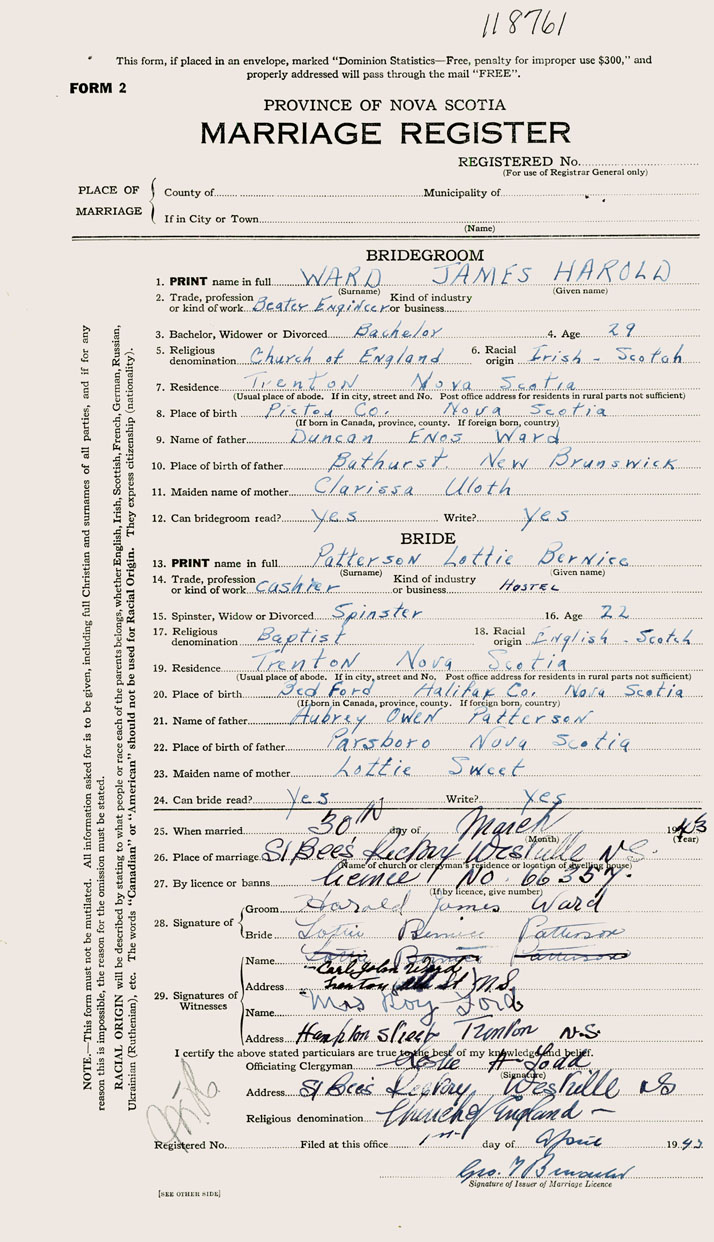 118761
This form, if placed in an envelope, marked "Dominion Statistics—Free, penalty for improper use $300," and
properly addressed will pass through the mail "FREE".
FORM 2
PROVINCE OF NOVA SCOTIA
MARRIAGE REGISTER
REGISTERED No.
(For use of Registrar General only)
PLACE OF MARRIAGE
County of Municipality of
If in City or Town
(Name)
BRIDEGROOM
1. PRINT name in full WARD JAMES HAROLD
(Surname) (Given name)
2. Trade, profession or kind of work Beater Engineer Kind of industry or business
3. Bachelor, Widower or Divorced Bachelor 4. Age 29
5. Religious denomination Church of England 6. Racial origin Irish - Scotch
7. Residence Trenton Nova Scotia
(Usual place of abode. If in city, street and No. Post office address for residents in rural parts not sufficient)
8. Place of birth Pictou Co. Nova Scotia
(If born in Canada, province, county. If foreign born, country)
9. Name of father Duncan Enos Ward
10. Place of birth of father Bathurst. New Brunswick
11. Maiden name of mother Clarissa Uloth
12. Can bridegroom read? Yes Write? Yes
BRIDE
13. PRINT name in full Patterson Lottie Bernice
(Surname) (Given name)
14. Trade, profession or kind of work cashier Kind of industry or business HOSTEL
15. Spinster, Widow or Divorced Spinster 16. Age 22
17. Religious denomination Baptist 18. Racial origin English - Scotch
19. Residence Trenton Nova Scotia
(Usual place of abode. If in city, street and No. Post office address for residents in rural parts not sufficient)
20. Place of birth Bedford Halifax Co. Nova Scotia
(If born in Canada, province, county. If foreign born, country)
21. Name of father Aubrey Owen Patterson
22. Place of birth of father Parsboro Nova Scotia
23. Maiden name of mother Lottie Sweet
24. Can bride read? Yes Write? Yes
25. When married 30th day of March 1943
(Month) (Year)
26. Place of marriage St Bee's Rectory Westville N.S.
(Name of church or clergyman's residence or location of dwelling house)
27. By licence or banns licence No. 66357.
(If by licence, give number)
28. Signature of
Groom Harold James Ward
Bride Lottie Bernice Patterson
29. Signatures of Witnesses
Name Lottie Bernice Patterson
Carl John Ward
Address Trenton St N.S.
Name Mrs Roy Ford
Address Hampton Street Trenton N.S.
I certify the above stated particulars are true to the best of my knowledge and belief.
Officiating Clergyman
(Signature)
Address St Bee's Rectory, Westville NS
Religious denomination Church of England —
Registered No. Filed at this office 1st day of April 1943
Geo.
Signature of Issuer of Marriage Licence
[SEE OTHER SIDE]
NOTE.—This form must not be mutilated. All information asked for is to be given, including full Christian and surnames of all parties, and if for any
reason this is impossible, the reason for the omission must be stated.
RACIAL ORIGIN will be described by stating to what people or race each of the parents belongs, whether English, Irish, Scottish, French, German, Russian,
Ukrainian (Ruthenian), etc. The words "Canadian" or "American" should not be used for Racial Origin. They express citizenship (nationality).